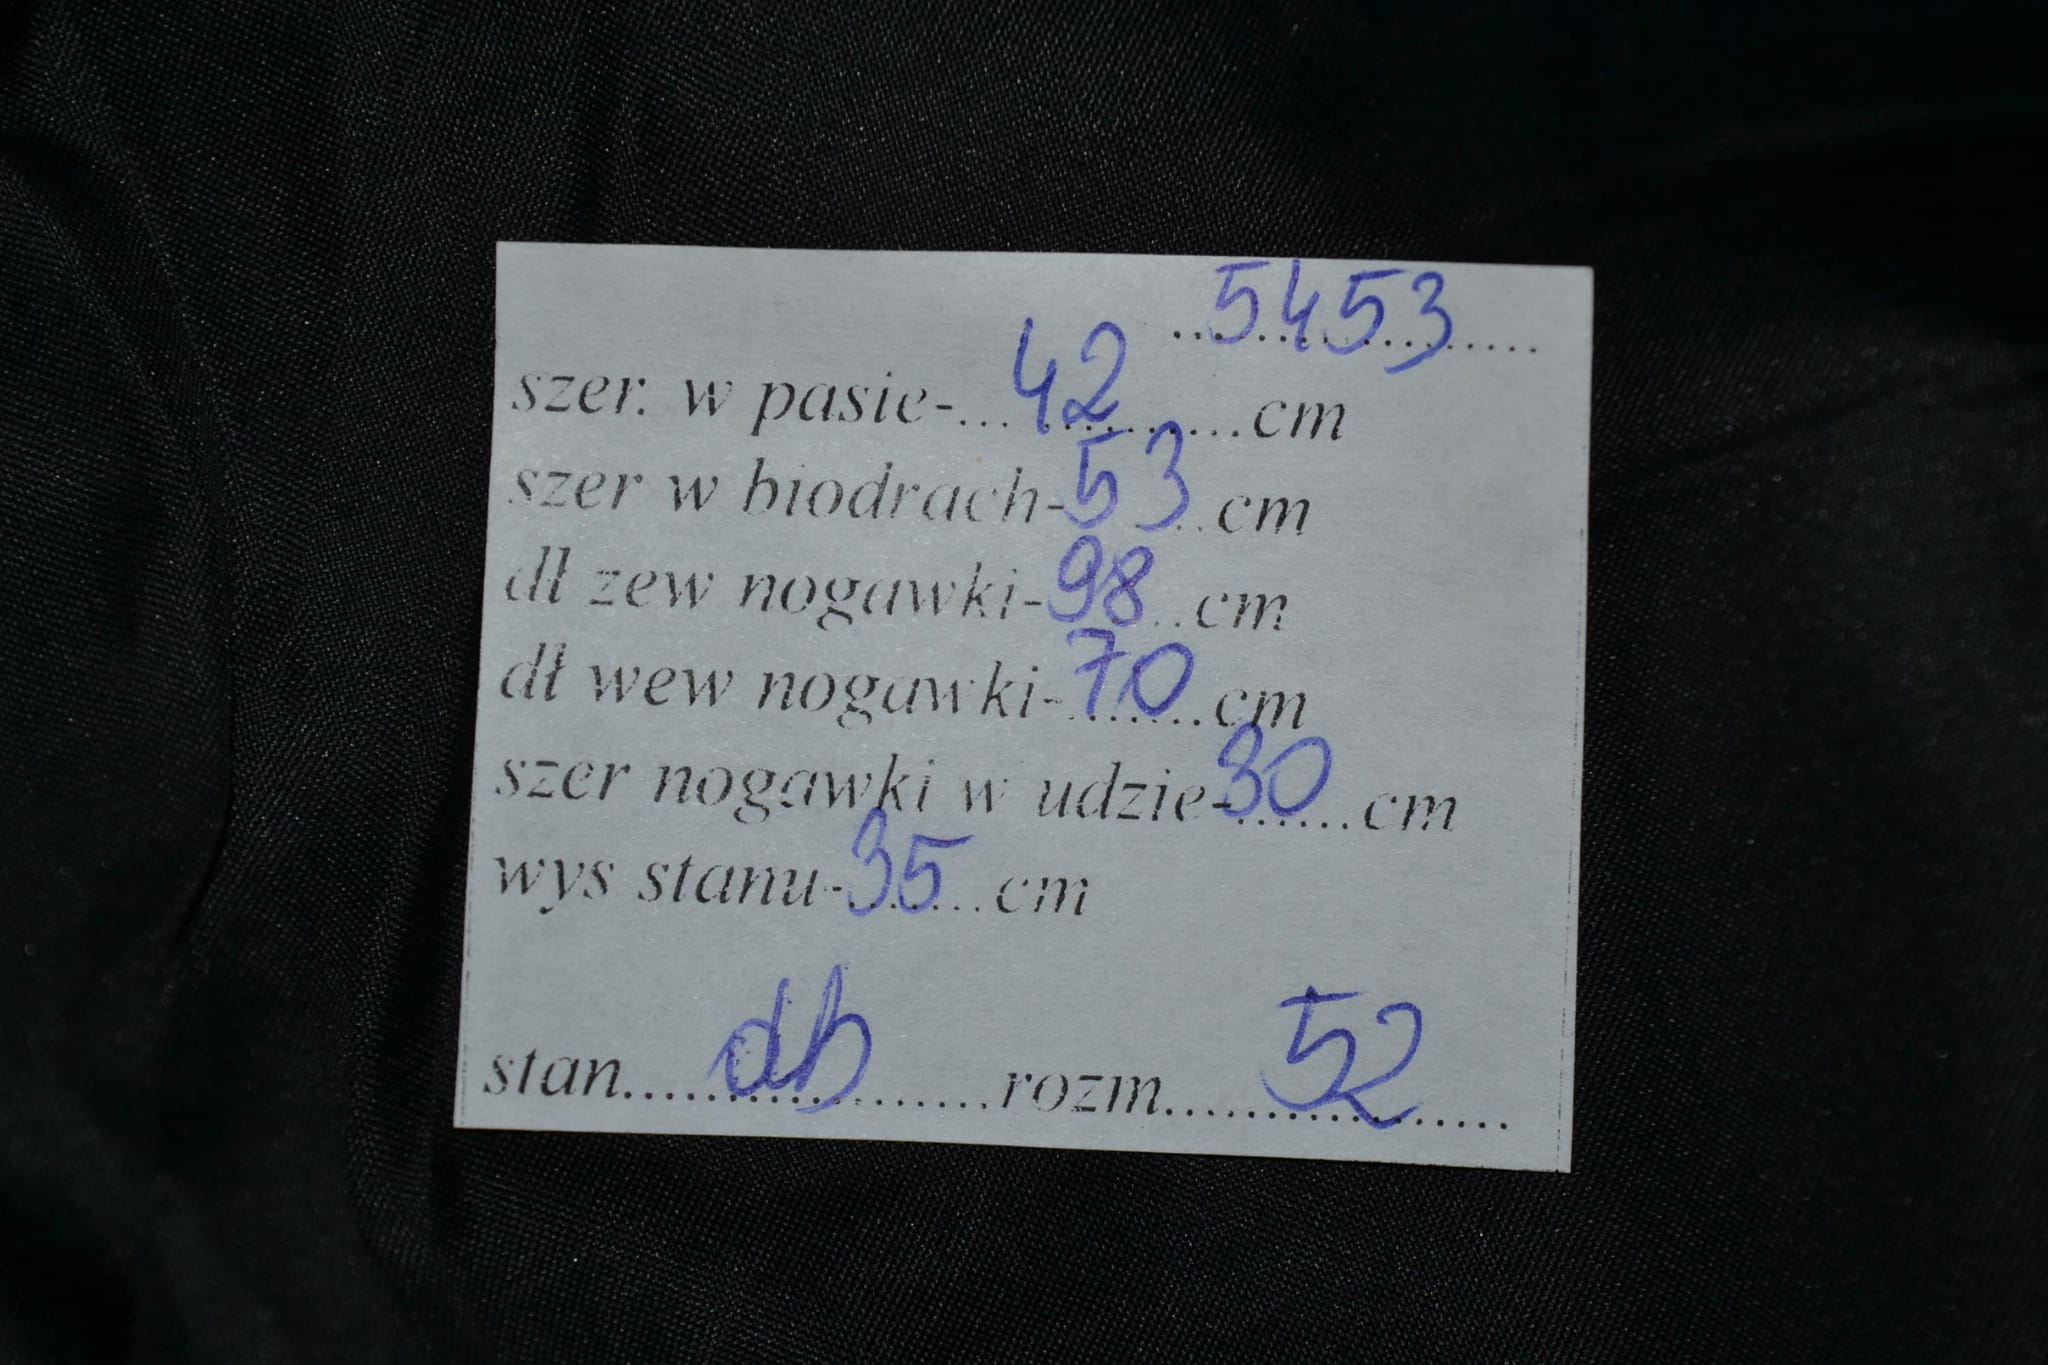 ..5453..........
szer. w pasie-...42..........cm
szer w biodrach-53....cm
dł zew nogawki-98..cm
dł wew nogawki-70.......cm
szer nogawki w udzie-30.......cm
wys stanu-35.......cm
stan....db..................rozm....52..............